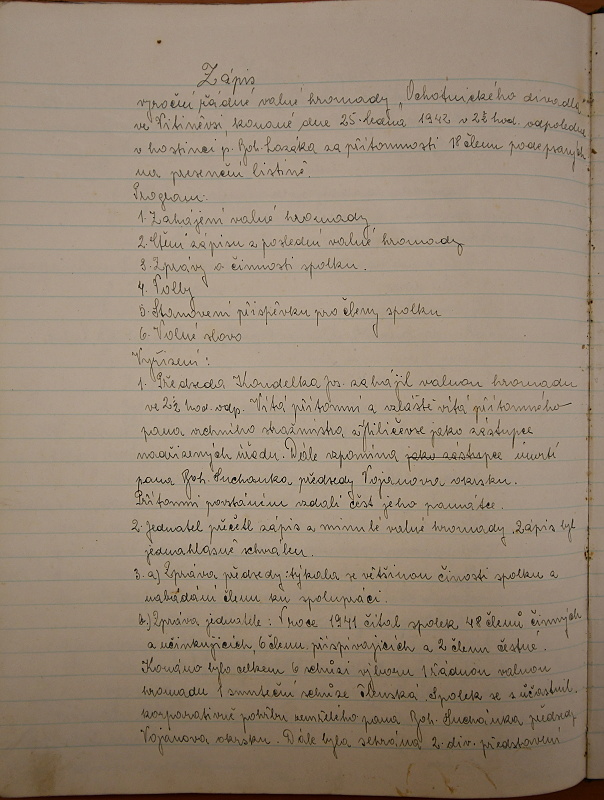 Zápis
výroční řádné valné hromady „Ochotnického divadla
ve Vitiněvsi, konané dne 25. ledna 1942 v 2½ hod. odpoledne
v hostinci p. Boh. Lozáka za přítomnosti 18 členu podepsaných
na presenční listině.
Program:
1. Zahájení valné hromady
2. Čtení zápisu z poslední valné hromady
3. Zprávy o činnosti spolku.
4. Volby
5. Stanovení příspěvku pro členy spolku
6. Volné slovo
Vyřízení:
1. Předseda Koudelka Jos. zahájil valnou hromadu
ve 2½ hod. odp. Vítá přítomní a vzláště vítá přítomného
pana vrchního strážmistra z jako zástupce
nadřízených úřadu. Dále vzpomíná jako zástupce úmrtí
pana Boh. Suchánka předsedy Vojanova okrsku.
Přítomní povstáním vzdali čest jeho památce.
2. Jednatel přečetl zápis z minulé valné hromady. Zápis byl
jednahlasně schválen.
3. a) Zpráva předsedy: týkala se většinou činosti spolku a
nabádání členu ku spolupráci.
b.) Zpráva jednatele: V roce 1941 čítal spolek 48 členů činných
a učinkujících, 6 členu přispívajících a 2 členu čestné.
Konáno bylo celkem 6 schůzí výboru, 1 řádnou valnou
hromadu 1 smuteční schůze členská. Spolek se súčastnil
korporativně pohřbu zemřelého pana Boh. Suchánka předsedy
Vojanova okrsku. Dále byla sehrána 2. div. představení